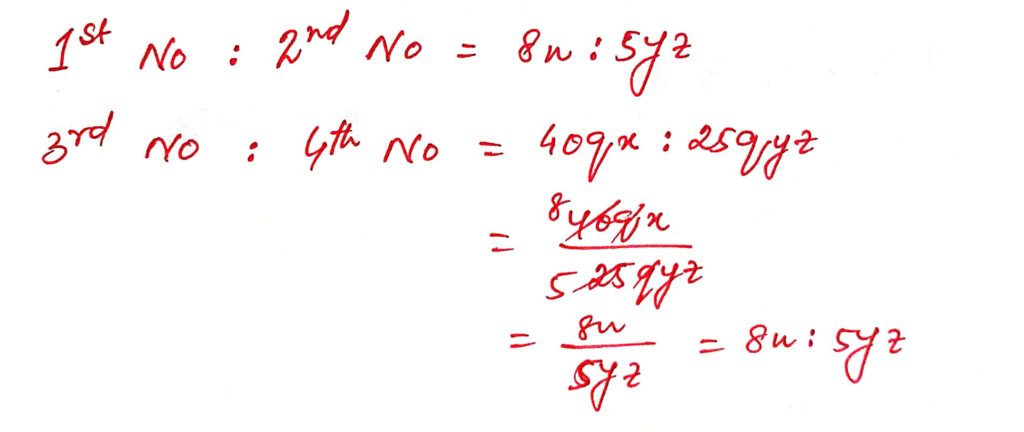 1st No : 2nd No = 8x : 5yz
3rd No : 4th No = 40qx : 25qyz
= 8 40qx / 5 25qyz
= 8x / 5yz = 8x : 5yz